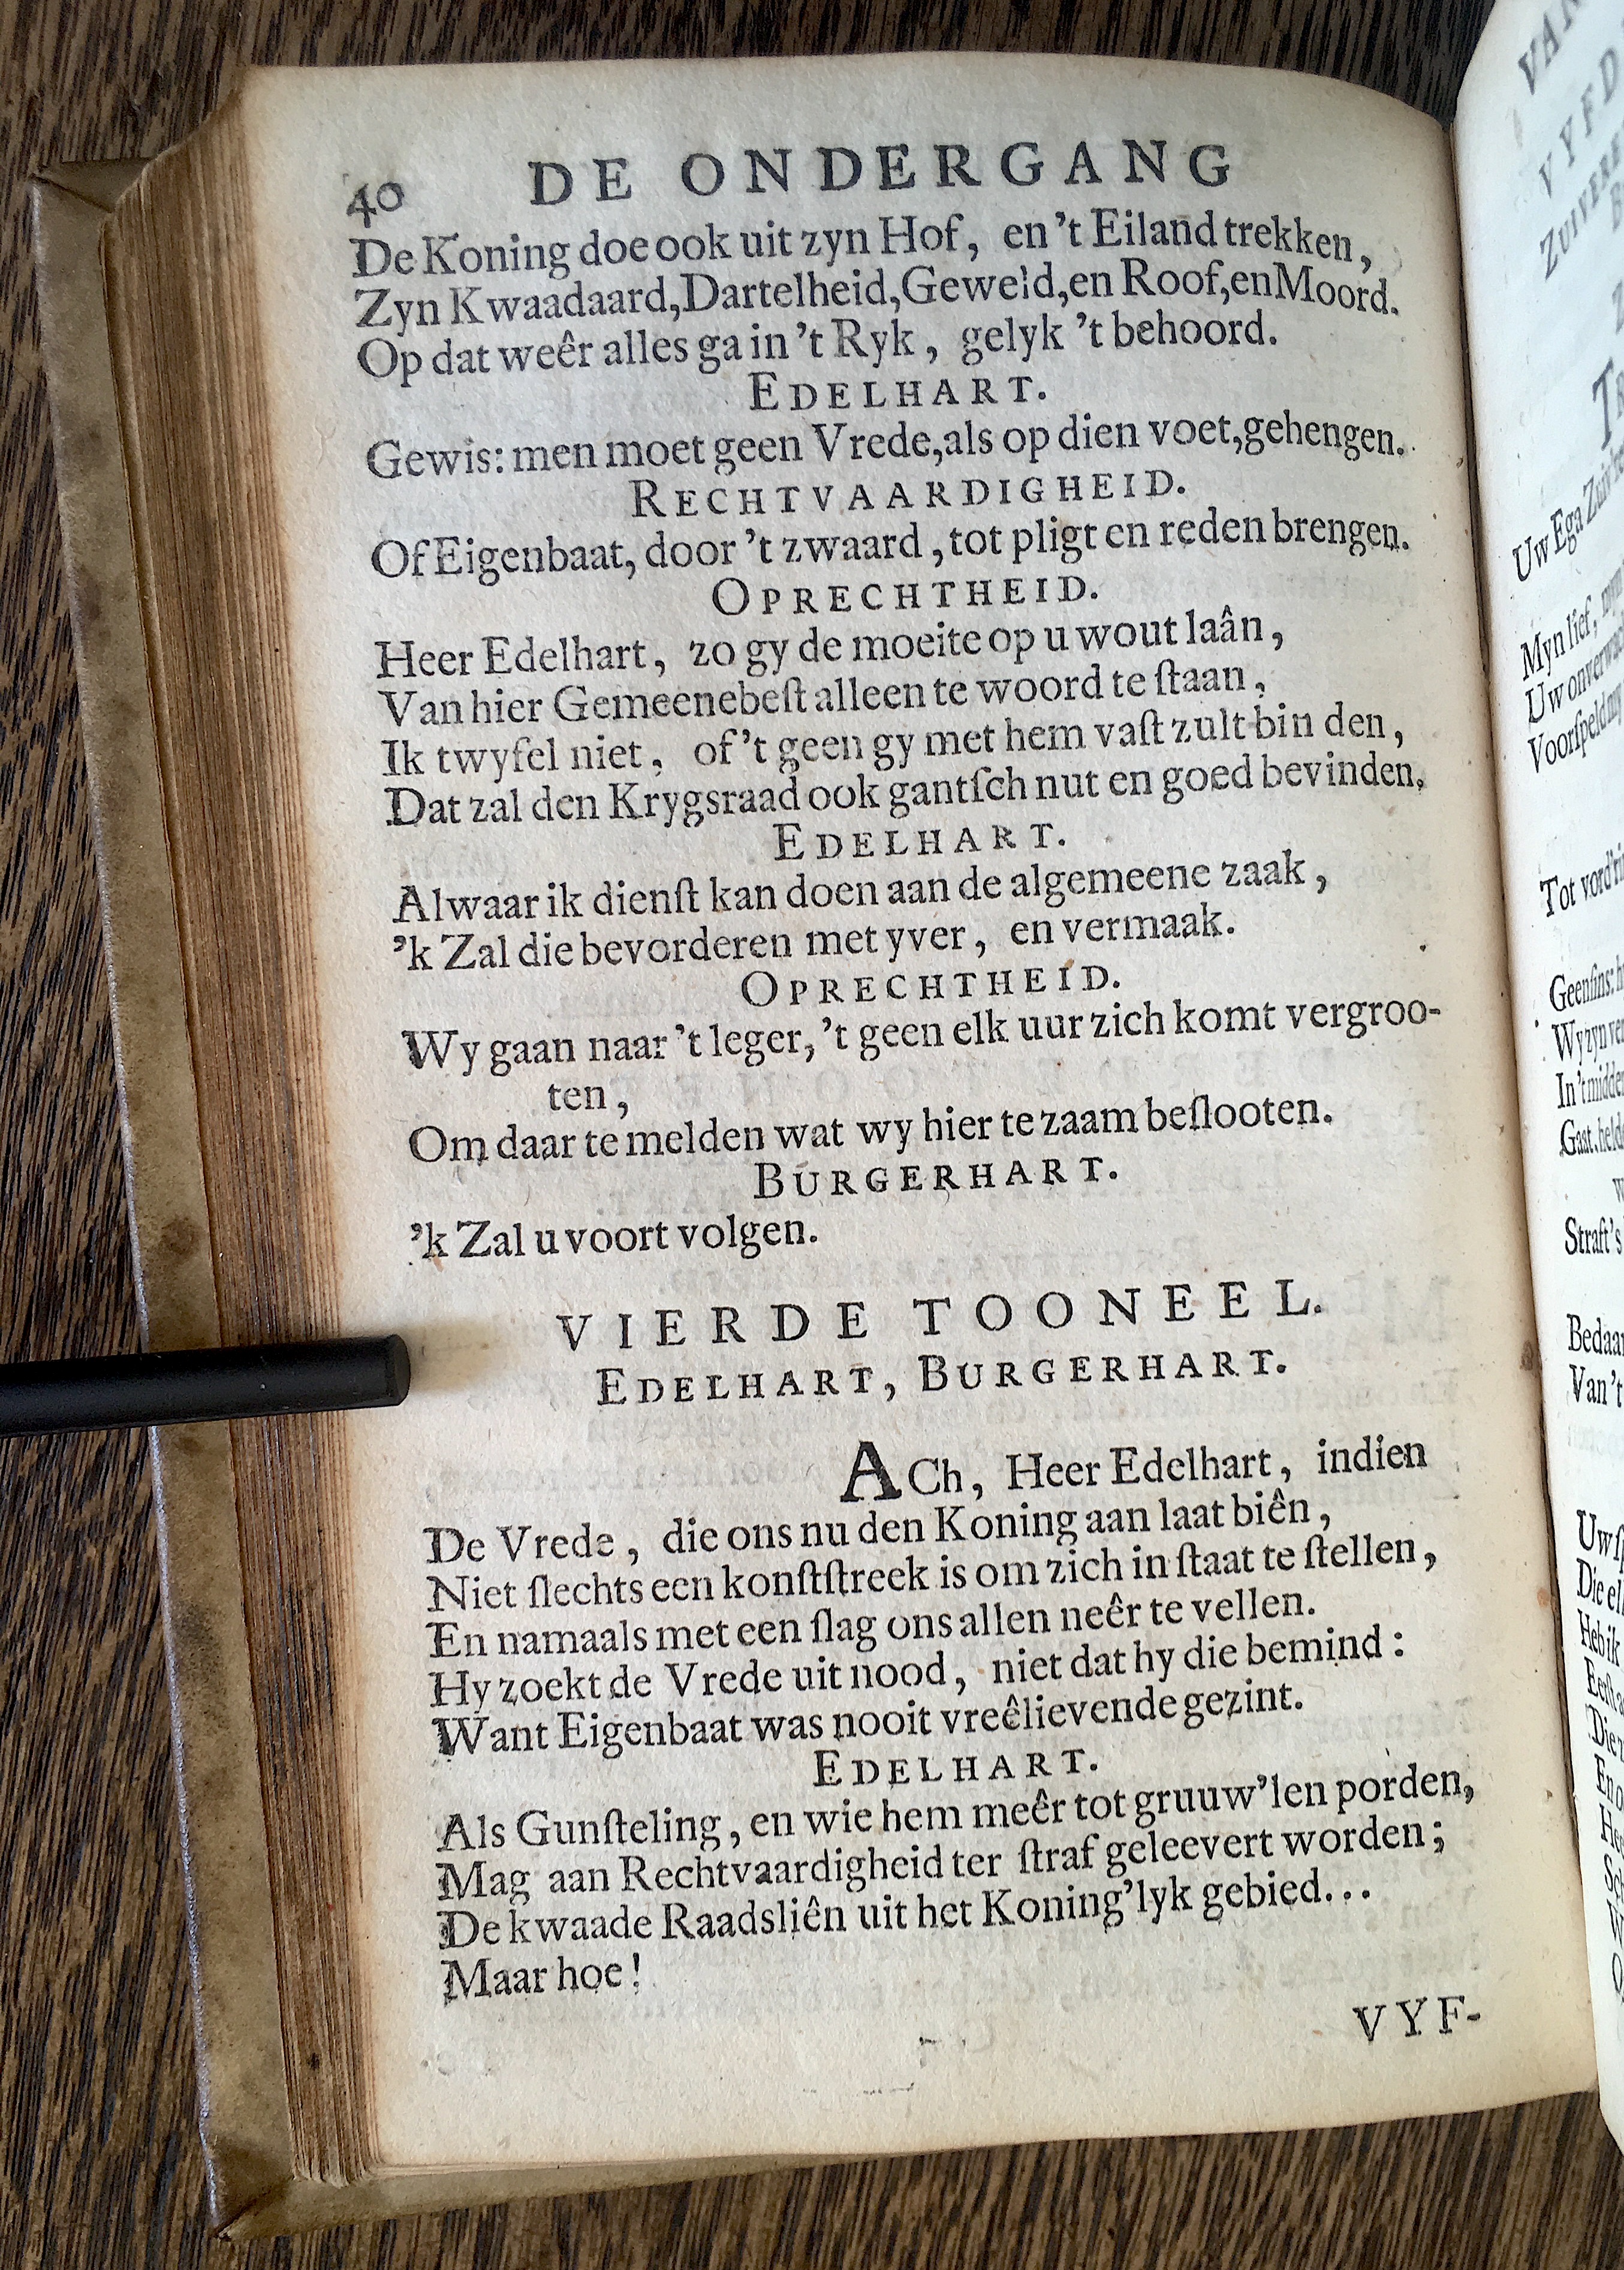 40 DE ONDERGANG
De Koning doe ook uit zyn Hof, en 't Eiland trekken,
Zyn Kwaadaard, Dartelheid, Geweld, en Roof, en Moord.
Op dat weêr alles ga in 't Ryk, gelyk 't behoord.
EDELHART.
Gewis: men moet geen Vrede, als op dien voet, gehengen.
RECHTVAARDIGHEID.
Of Eigenbaat, door 't zwaard, tot pligt en reden brengen.
OPRECHTHEID.
Heer Edelhart, zo gy de moeite op u wout laân,
Van hier Gemeenebeſt alleen te woord te ſtaan,
Ik twyfel niet, of 't geen gy met hem vaſt zult bin den,
Dat zal den Krygsraad ook gantſch nut en goed bevinden,
EDELHART.
Alwaar ik dienſt kan doen aan de algemeene zaak,
'k Zal die bevorderen met yver, en vermaak.
OPRECHTHEID.
Wy gaan naar 't leger, 't geen elk uur zich komt vergroo-
ten,
Om daar te melden wat wy hier te zaam beſlooten.
BURGERHART.
'k Zal u voort volgen.
VIERDE TOONEEL.
EDELHART, BURGERHART.
ACh, Heer Edelhart, indien
De Vrede, die ons nu den Koning aan laat biên,
Niet ſlechts een konſtſtreek is om zich in ſtaat te ſtellen,
En namaals met een ſlag ons allen neêr te vellen.
Hy zoekt de Vrede uit nood, niet dat hy die bemind:
Want Eigenbaat was nooit vreêlievende gezint.
EDELHART.
Als Gunſteling, en wie hem meêr tot gruuw'len porden,
Mag aan Rechtvaardigheid ter ſtraf geleevert worden;
De kwaade Raadsliên uit het Koning'lyk gebied...
Maar hoe!
VYF-
Uw Ega
Myn lief,
Tot
Geenſins:
Wy zyn
In 't
Straft's
Van 't
Die
Heb ik